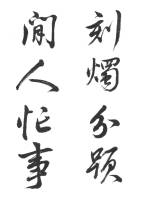 刻燭分題
閒人忙事